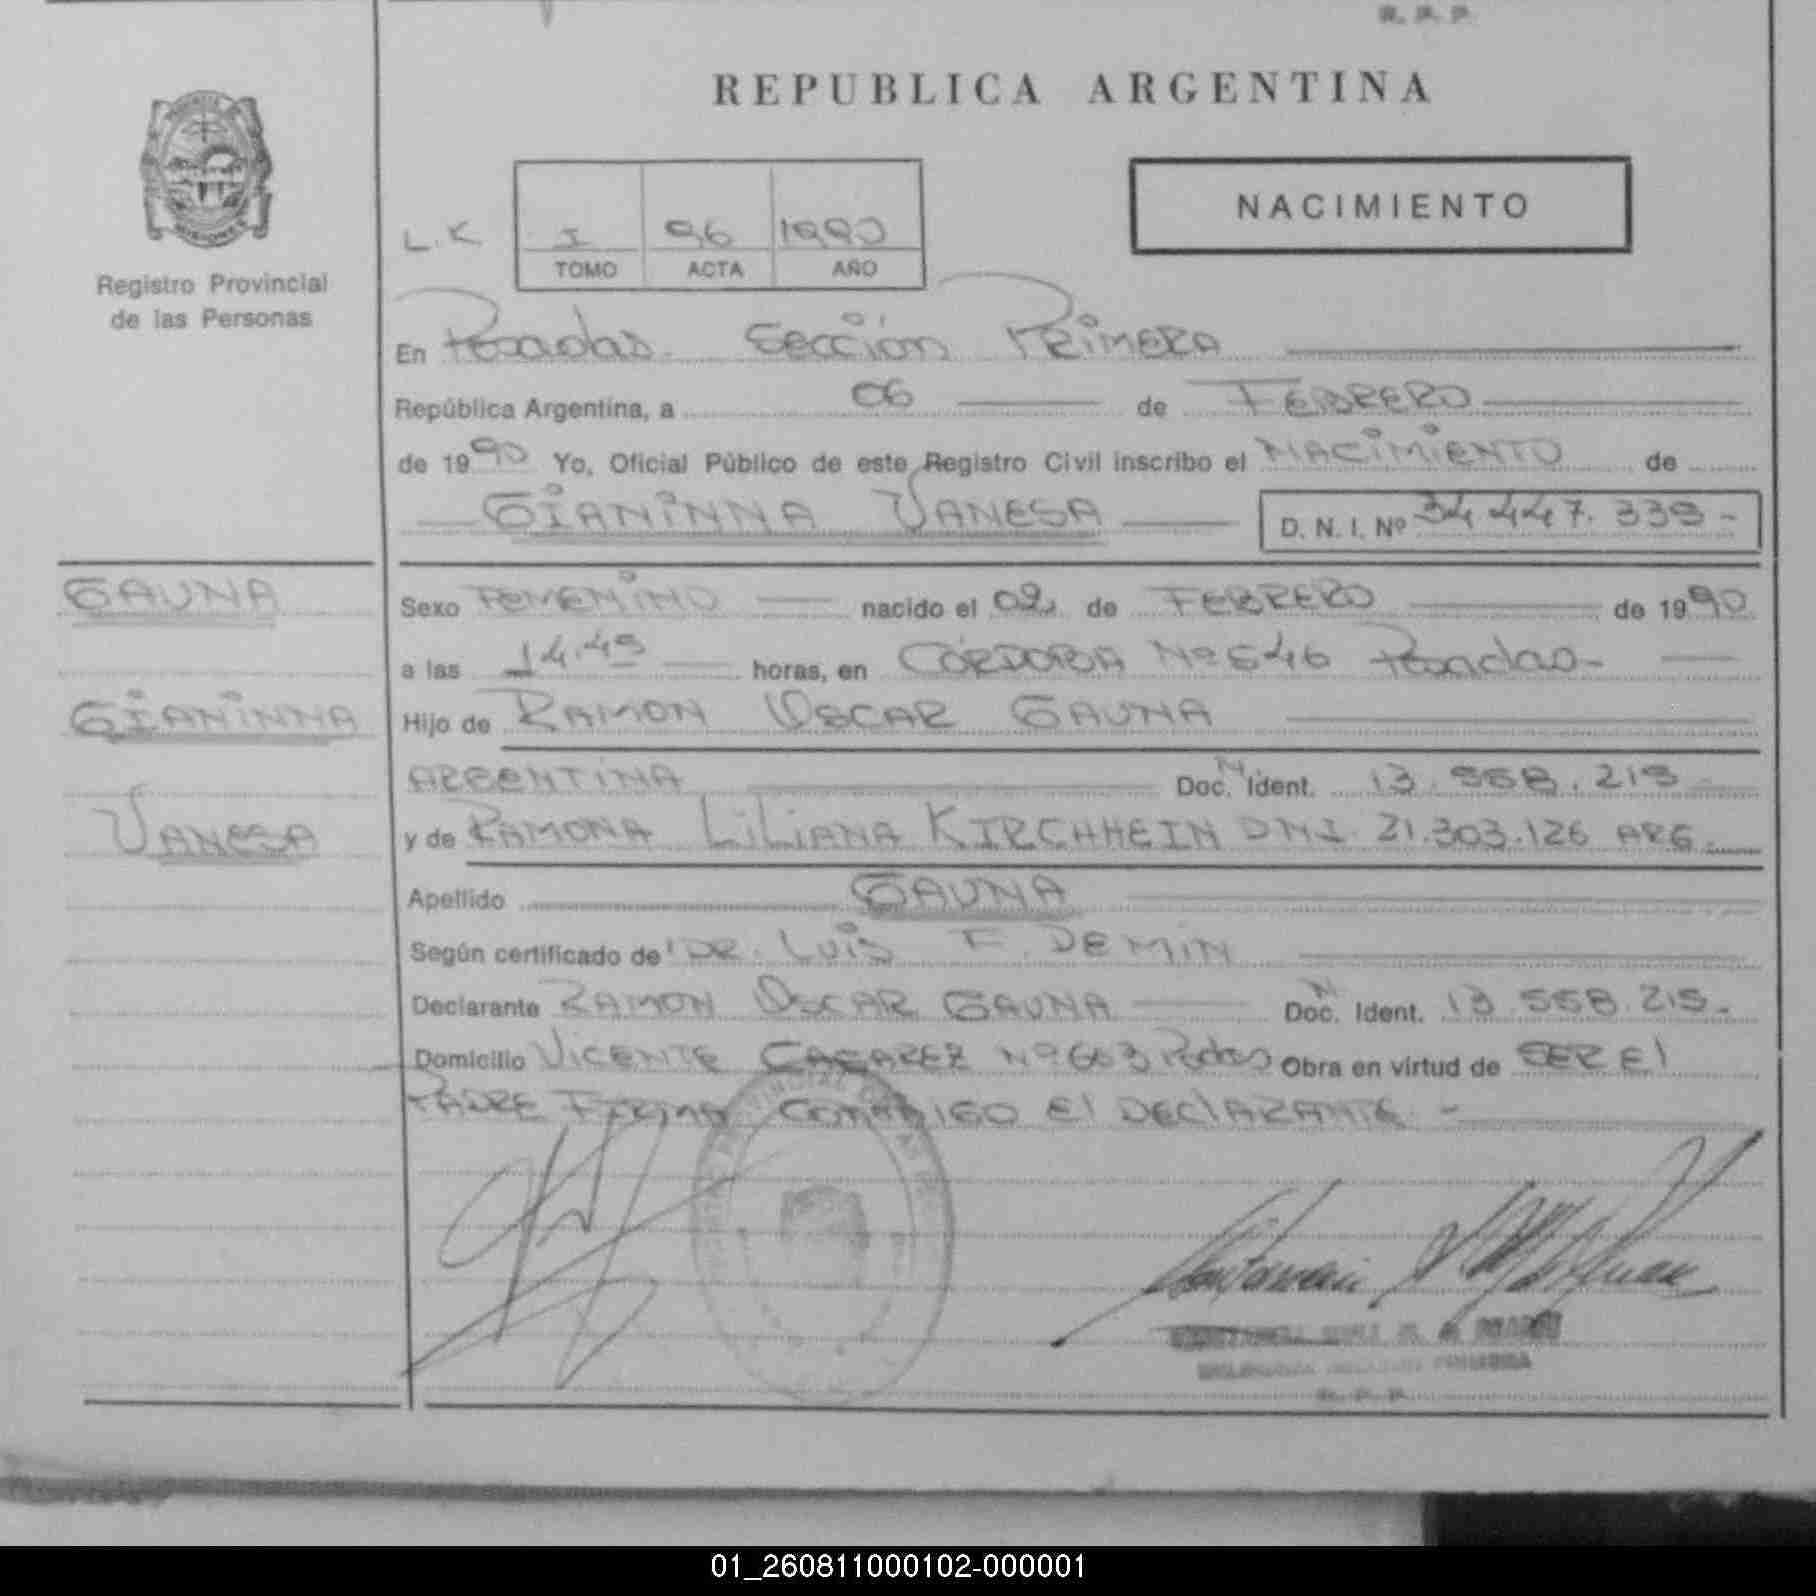 R. P. P.
REPUBLICA ARGENTINA
NACIMIENTO
L.K I 96 1990
TOMO ACTA AÑO
Registro Provincial
de las Personas
En Posadas Sección Primera
República Argentina, a 06 de FEBRERO
de 1990 Yo, Oficial Público de este Registro Civil inscribo el NACIMIENTO de
GIANINNA VANESA D. N. I. Nº 34.447.339-
GAUNA
GIANINNA
VANESA
Sexo FEMENINO nacido el 02 de FEBRERO de 1990
a las 14.45 horas, en CÓRDOBA Nº 646 Posadas-
Hijo de RAMON OSCAR GAUNA
ARGENTINA Doc. N Ident. 13.558.215
y de RAMONA LILIANA KIRCHHEIN DNI 21.303.126 ARG.
Apellido GAUNA
Según certificado de DR. LUIS F. DEMIN
Declarante RAMON OSCAR GAUNA Doc. N Ident. 13.558.215.
Domicilio VICENTE Nº 663 Pdas Obra en virtud de SER El
PADRE FIRMA CONMIGO El DEClARANTE -
R. P. P.
01_260811000102-000001